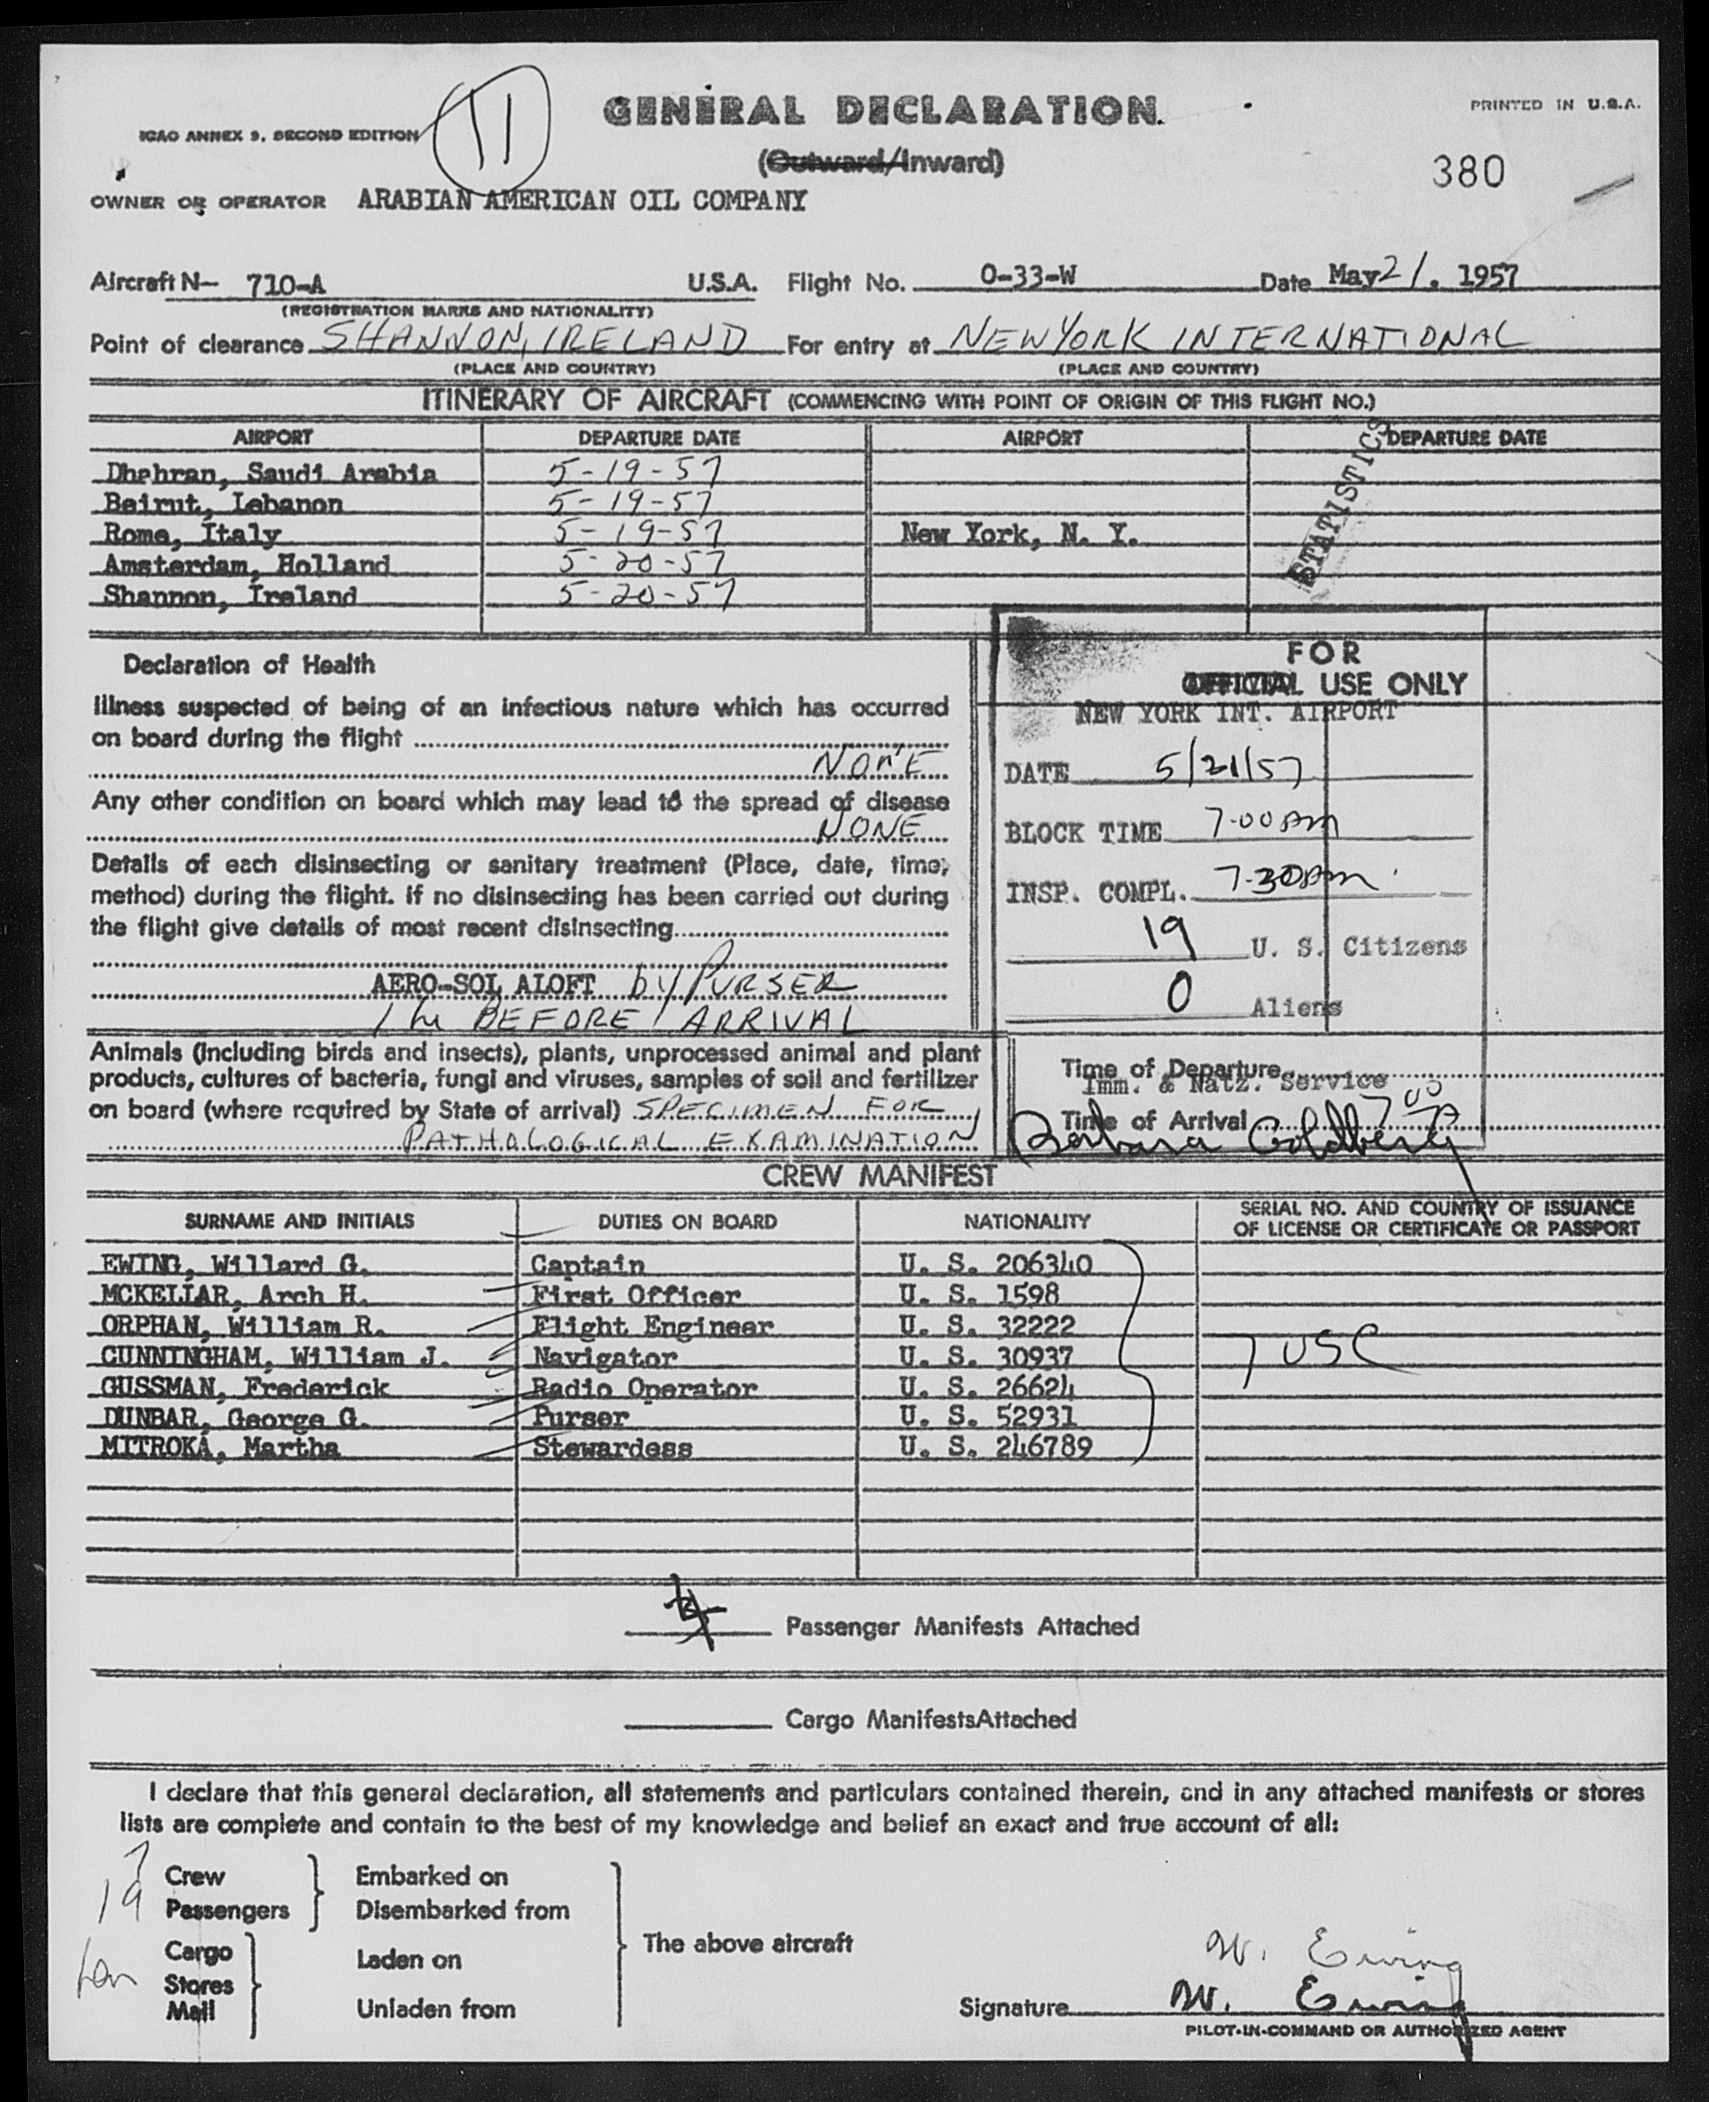 ICAO ANNEX 9, SECOND EDITION
11
GENERAL DECLARATION.
PRINTED IN U.S.A.
(Outward/Inward)
380
OWNER OR OPERATOR ARABIAN AMERICAN OIL COMPANY
Aircraft N- 710-A U.S.A. Flight No. O-33-W Date May 21. 1957
(REGISTRATION MARKS AND NATIONALITY)
Point of clearance SHANNON, IRELAND For entry at NEW YORK INTERNATIONAL
(PLACE AND COUNTRY) (PLACE AND COUNTRY)
ITINERARY OF AIRCRAFT (COMMENCING WITH POINT OF ORIGIN OF THIS FLIGHT NO.)
AIRPORT DEPARTURE DATE AIRPORT DEPARTURE DATE
Dhahran, Saudi Arabia 5-19-57
Beirut, Lebanon 5-19-57
Rome, Italy 5-19-57 New York, N. Y.
Amsterdam, Holland 5-20-57
Shannon, Ireland 5-20-57
STATISTICS
Declaration of Health
Illness suspected of being of an infectious nature which has occurred
on board during the flight
NONE
Any other condition on board which may lead to the spread of disease
NONE
Details of each disinsecting or sanitary treatment (Place, date, time,
method) during the flight. If no disinsecting has been carried out during
the flight give details of most recent disinsecting
AERO-SOL ALOFT by PURSER
1 hr BEFORE ARRIVAL
FOR
OFFICIAL USE ONLY
NEW YORK INT. AIRPORT
DATE 5/21/57
BLOCK TIME 7:00 AM
INSP. COMPL. 7:30 AM
19 U. S. Citizens
0 Aliens
Animals (including birds and insects), plants, unprocessed animal and plant
products, cultures of bacteria, fungi and viruses, samples of soil and fertilizer
on board (where required by State of arrival) SPECIMEN FOR
PATHOLOGICAL EXAMINATION
Time of Departure
Imm. & Natz. Service
Time of Arrival 7 00 A
Barbara Goldberg
CREW MANIFEST
SURNAME AND INITIALS DUTIES ON BOARD NATIONALITY SERIAL NO. AND COUNTRY OF ISSUANCE
OF LICENSE OR CERTIFICATE OR PASSPORT
EWING, Willard G. Captain U. S. 206340
MCKELLAR, Arch H. First Officer U. S. 1598
ORPHAN, William R. Flight Engineer U. S. 32222
CUNNINGHAM, William J. Navigator U. S. 30937 7 USC
GUSSMAN, Frederick Radio Operator U. S. 26624
DUNBAR, George G. Purser U. S. 52931
MITROKA, Martha Stewardess U. S. 246789
Passenger Manifests Attached
Cargo Manifests Attached
I declare that this general declaration, all statements and particulars contained therein, and in any attached manifests or stores
lists are complete and contain to the best of my knowledge and belief an exact and true account of all:
7 Crew Embarked on
19 Passengers Disembarked from
The above aircraft
Cargo Laden on
Stores
Mail Unladen from
W. Ewing
Signature W. Ewing
PILOT-IN-COMMAND OR AUTHORIZED AGENT